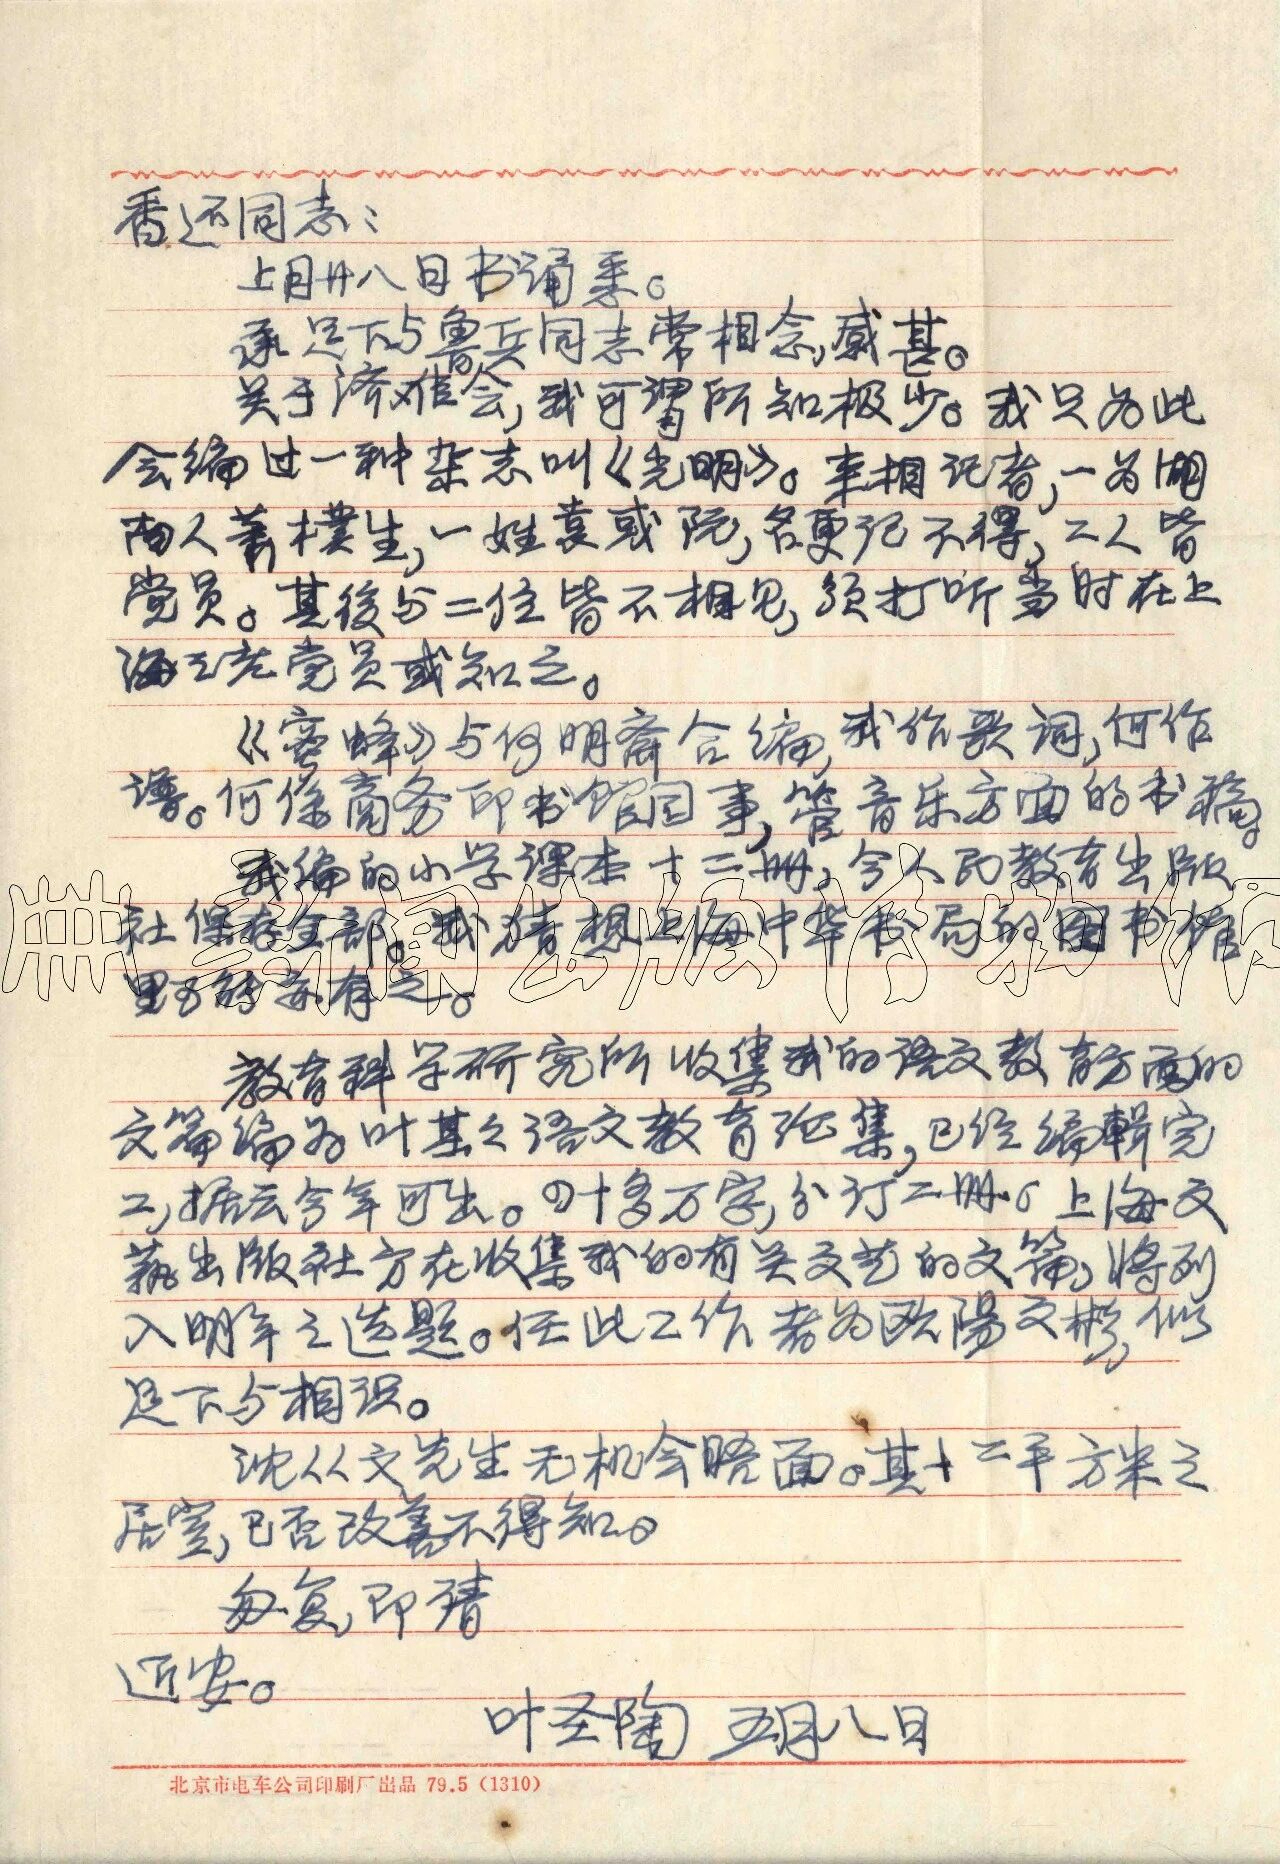 香还同志：
上月廿八日书诵悉。
承足下与鲁兵同志常相念，感甚。
关于济难会，我可谓所知极少。我只为此
会编过一种杂志叫《光明》。来相记者，一为湖
南人萧樸生，一姓袁或阮，名更记不得，二人皆
党员。其後与二位皆不相见，须打听当时在上
海之老党员或知之。
《蜜蜂》与何明斋合编，我作歌词，何作
谱。何係商务印书馆同事，管音乐方面的书稿。
我编的小学课本十二册，今人民教育出版
社保存全部。我猜想上海中华书局的图书馆
里可能亦有之。
教育科学研究所收集我的语文教育方面的
文篇编为叶某之语文教育论集，已经编輯完
工，据云今年可出。四十多万字，分订二册。上海文
藝出版社方在收集我的有关文艺的文篇，将列
入明年之选题。任此工作者为欧陽文彬，似
足下与相识。
沈从文先生无机会晤面。其十二平方米之
居室，已否改善不得知。
匆复，即请
近安。
叶圣陶 五月八日
北京市电车公司印刷厂出品 79.5 (1310)